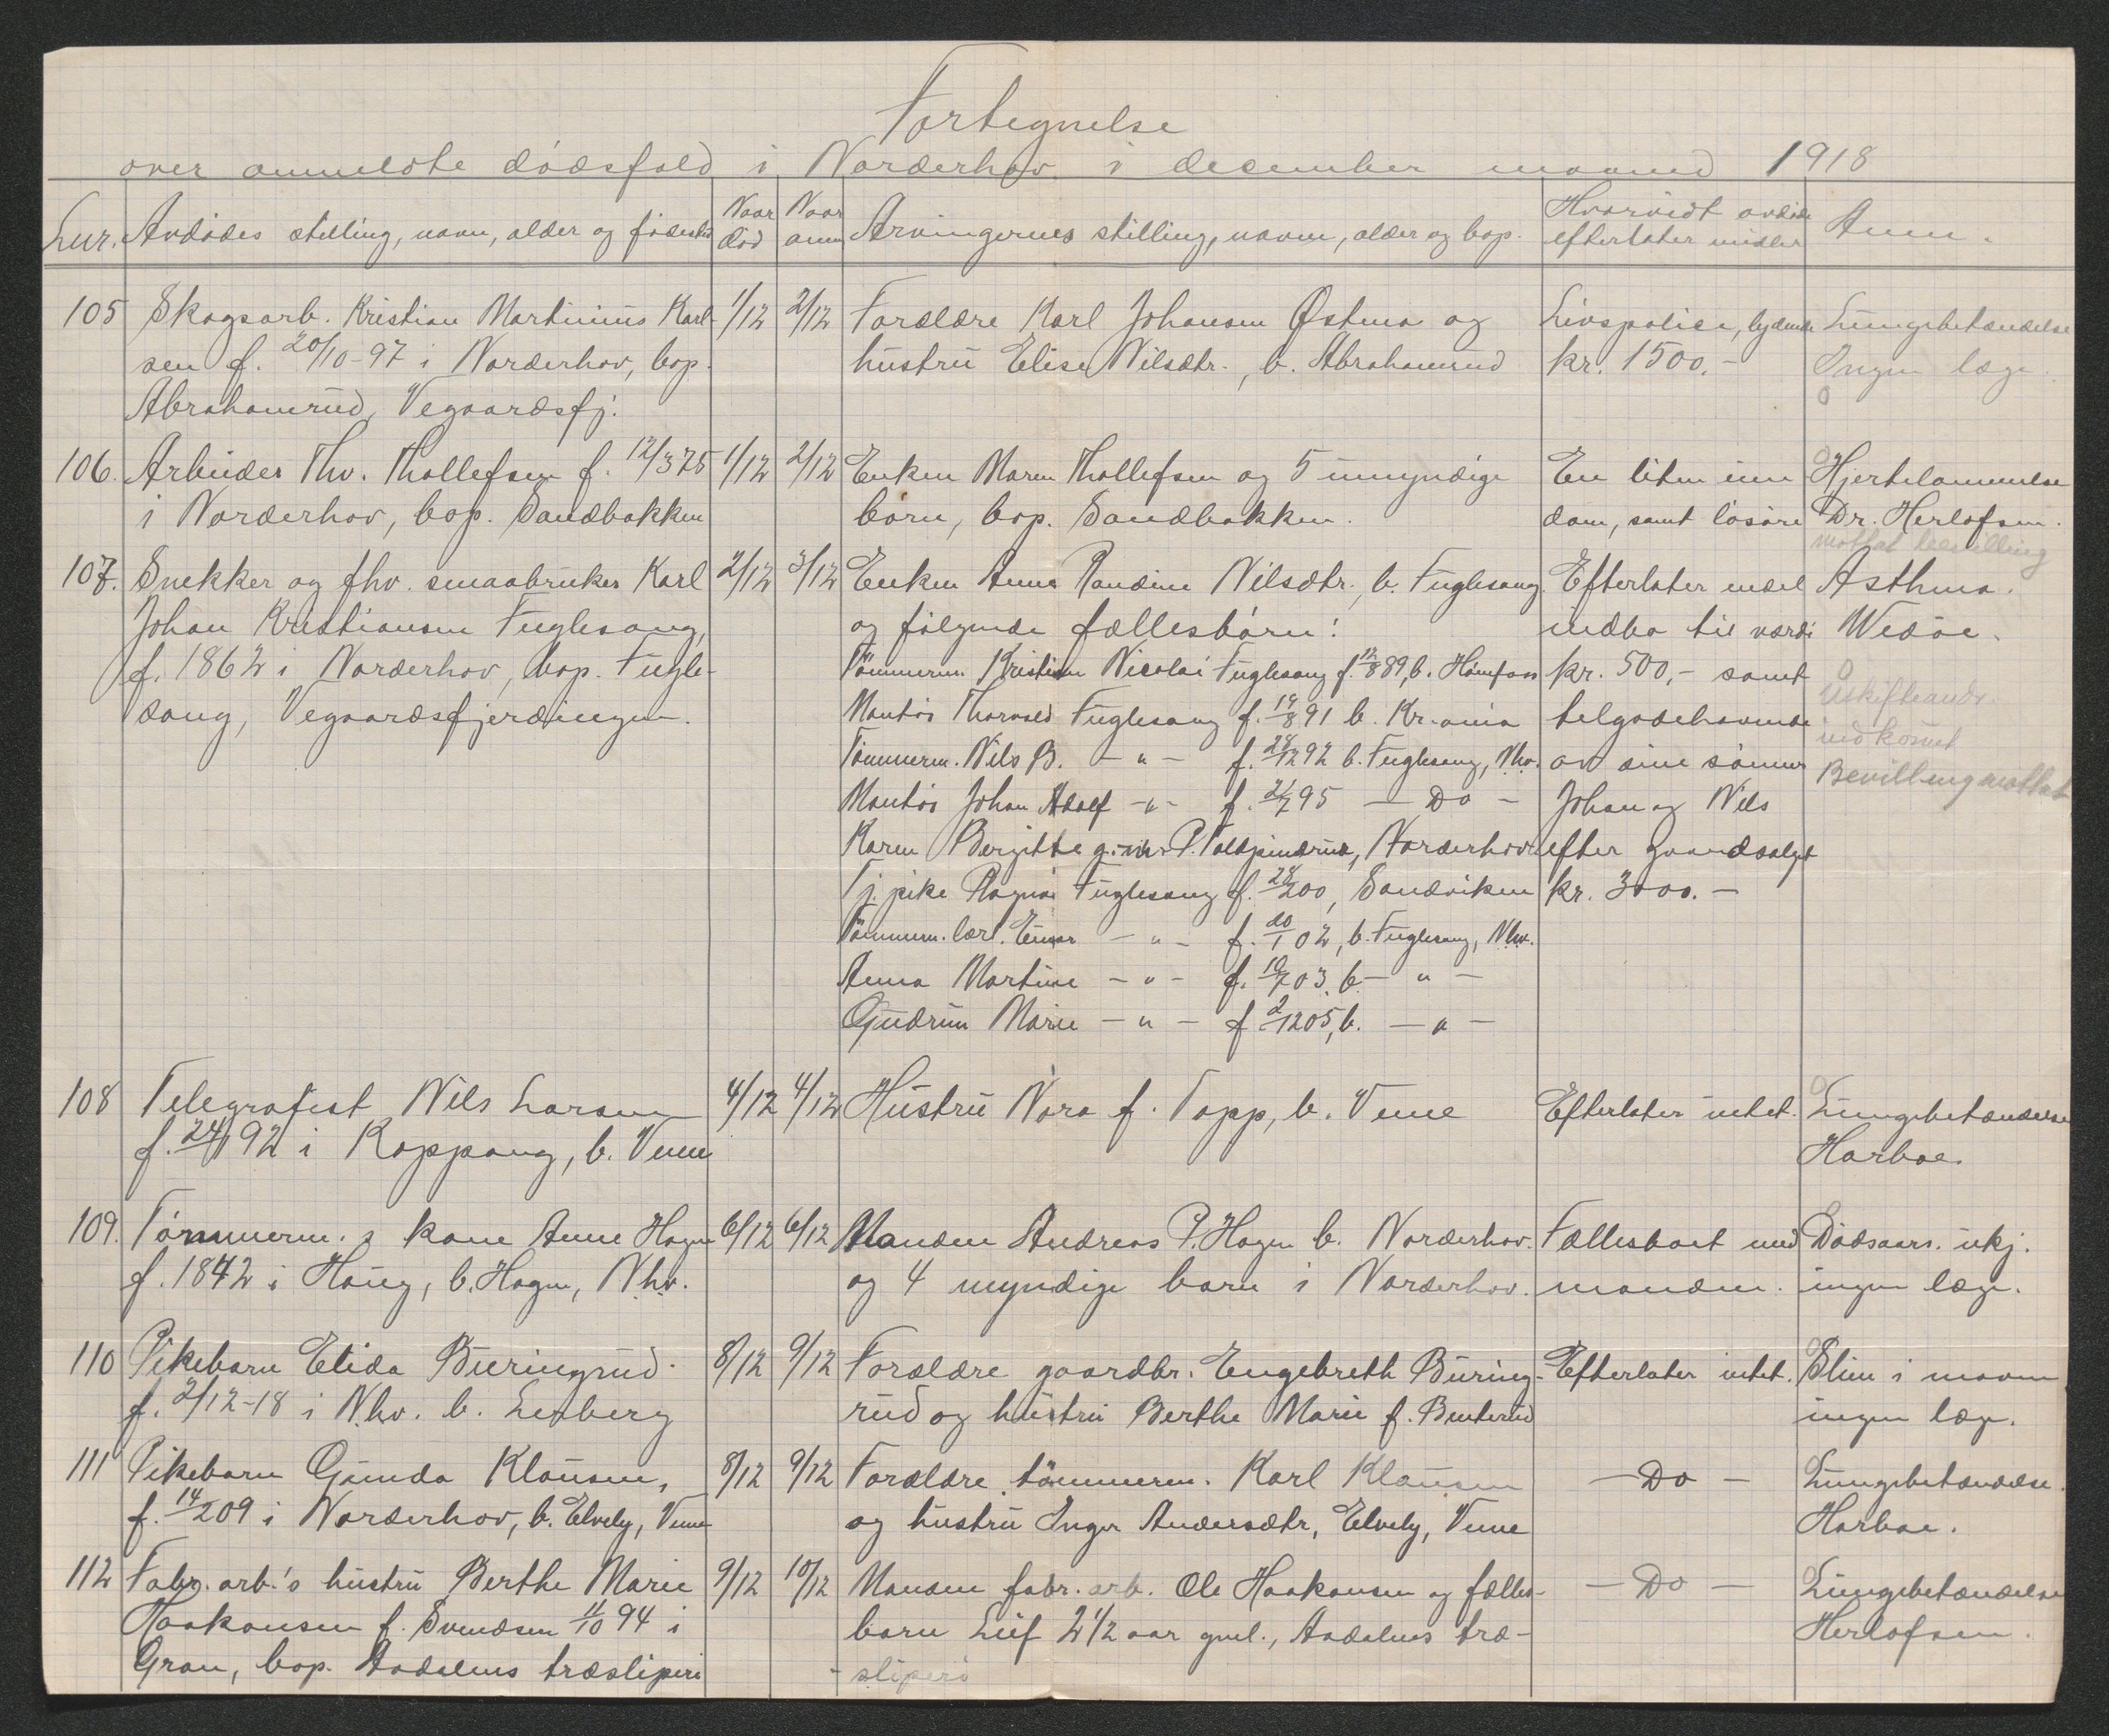 Fortegnelse
over anmeldte dødsfald i Norderhov i december maaned 1918
Lnr. Avdødes stilling, navn, alder og fødested Naar død Naar anm Arvingernes stilling, navn, alder og bop. Hvorvidt avdøde efterlater midler Anm.
105 Skogsarb. Kristian Martinius Karl- 1/12 2/12 Forældre Karl Johansen Østmo og Livspolice, lydende Lungebetændelse
sen f. 20/10-97 i Norderhov, bop. hustru Elise Nilsdtr., b. Abrahamrud kr. 1500.- Ingen læge.
Abrahamrud, Vegaardsfj. 0
106. Arbeider Thv. Thollefsen f. 12/3 75 1/12 2/12 Enken Maren Thollefsen og 5 umyndige En liten eien Hjertelammelse
i Norderhov, bop. Sandbakken børn, bop. Sandbakken. dom, samt løsøre Dr. Herlofsen.
mottat bevilling
107. Snekker og fhv. smaabruker Karl 2/12 3/12 Enken Anne Randine Nilsdtr., b. Fuglesang. Efterlater endel Asthma.
Johan Kristiansen Fuglesang, og følgende fællesbørn: indbo til værdi Wedøe.
f. 1862 i Norderhov, bop. Fugle- Tömmerm. Kristian Nicolai Fuglesang f. 12/8 89, b. Hønefoss kr. 500,- samt 0
sang, Vegaardsfjerdingen. Montør Thorvald Fuglesang f. 19/8 91 b. Kr.ania tilgodehavende Uskifteandr
indkomet
Tømmerm. Nils B. -"- f. 28/12 92 b. Fuglesang, Nhv. av sine sønner Bevilling mottat
Montør Johan Adolf -"- f. 21/7 95 - Do - Johan og Nils
Karen Bergitte g. m. P. Tolpinrud, Norderhov efter gaardsalget
Tj. pike Ragna Fuglesang f. 28/2 00, Sandviken kr. 3000.-
Tømmerm. lærl. Einar -"- f. 20/1 02, b. Fuglesang, Nhv.
Anna Martine -"- f. 10/7 03. b. -"-
Gudrun Marie -"- f. 2/12 05, b. -"-
108 Telegrafist Nils Larsen 4/12 4/12 Hustru Nora f. Topp, b. Veme Efterlater intet. Lungebetændelse
f. 24/1 92 i Koppang, b. Veme Harboe.
109. Tømmerm.s kone Anne Hagen 6/12 6/12 Manden Andreas P. Hagen b. Norderhov. Fællesboet med Dødsaars. ukj.
f. 1842 i Haug, b. Hagen, Nhv. og 4 myndige barn i Norderhov. manden. ingen læge.
110 Pikebarn Elida Buringrud 8/12 9/12 Forældre gaardbr. Engebreth Buring- Efterlater intet. Slim i maven
f. 2/12-18 i Nhv. b. Lenberg rud og hustru Berthe Marie f. Benterud ingen læge.
111 Pikebarn Gunda Klausen, 8/12 9/12 Forældre tømmerm. Karl Klausen - Do - Lungebetændelse.
f. 14/2 09 i Norderhov, b. Elvely, Veme og hustru Inger Andersdtr, Elvely, Veme Harboe.
112 Fabr. arb.'s hustru Berthe Marie 9/12 10/12 Manden fabr. arb. Ole Haakonsen og fælles- - Do - Lungebetændelse
Haakonsen f. Svendsen 4/10 94 i barn Leif 2 1/2 aar gml., Aadalens træ- Herlofsen.
Gran, bop. Aadalens træsliperi - sliperi